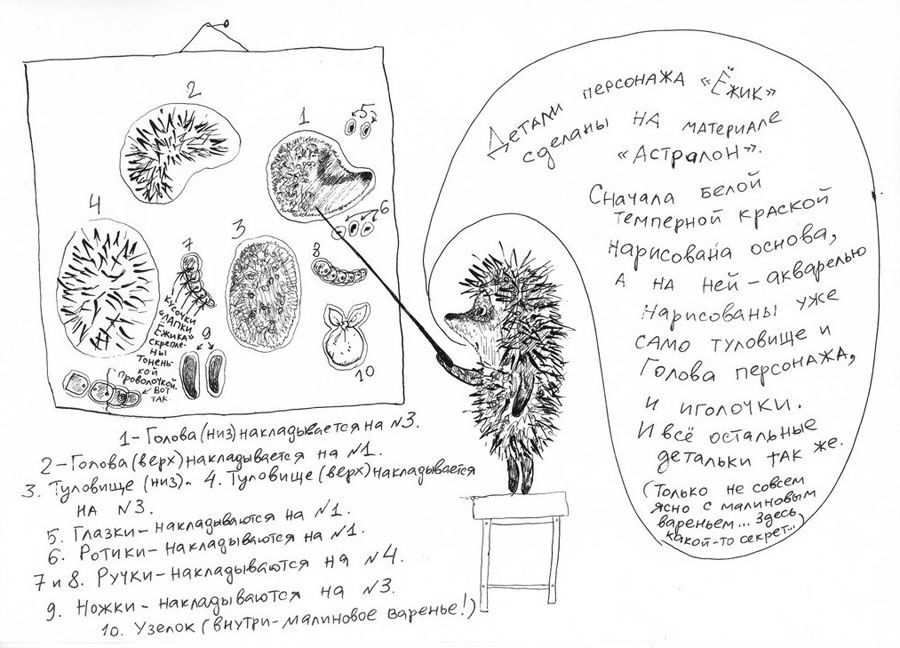 2
1
5
6
4
7
3
8
9
10
кусочки
«ЛАПКИ
Ёжика»
скрепле-
ны
тонень-
кой
проволочкой.
Вот
так
1-Голова (низ) накладывается на №3.
2-Голова (верх) накладывается на №1.
3. Туловище (низ). - 4. Туловище (верх) накладывается
на №3.
5. Глазки-накладываются на №1.
6. Ротики-накладываются на №1.
7 и 8. Ручки-накладываются на №4.
9. Ножки-накладываются на №3.
10. Узелок (внутри-малиновое варенье!)
Детали персонажа «Ёжик»
сделаны на материале
«Астралон».
Сначала белой
темперной краской
нарисована основа,
а на ней - акварелью
нарисованы уже
само туловище и
Голова персонажа,
и иголочки.
И всё остальные
детальки так же.
(Только не совсем
ясно с малиновым
вареньем... Здесь
какой-то секрет...)